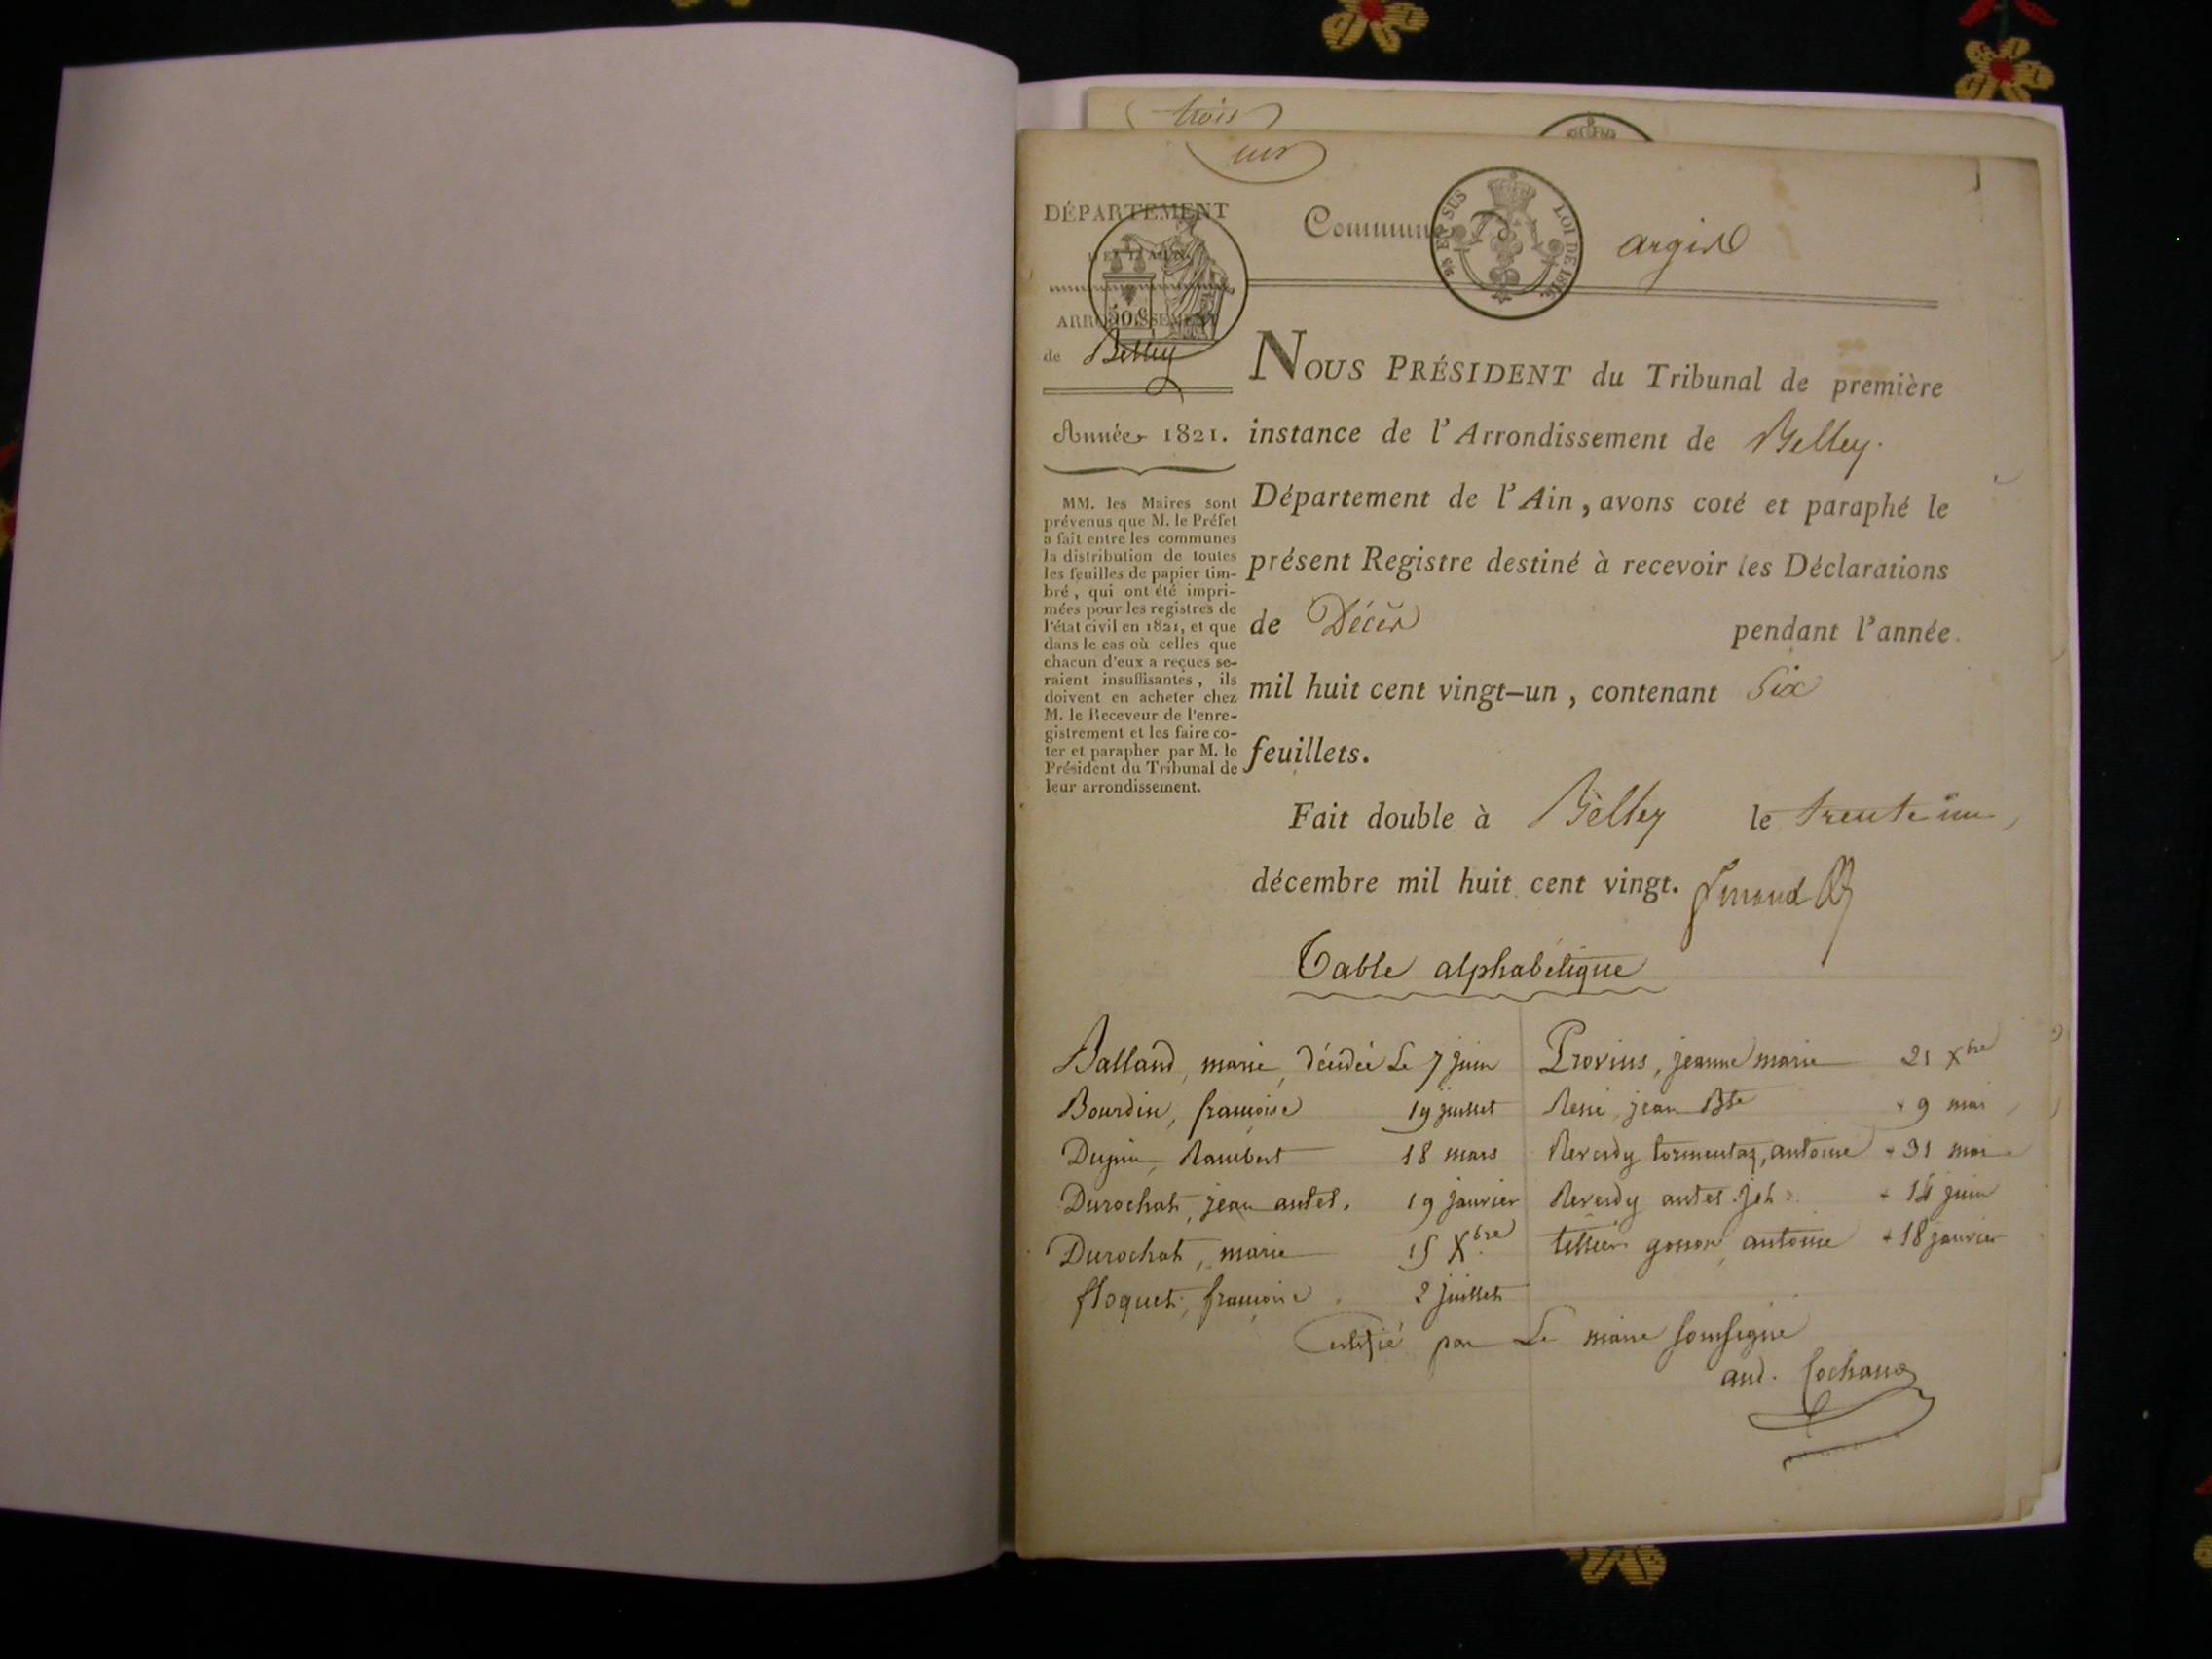 trois
un
DÉPARTEMENT
DE L'AIN.
ARRONDISSEMENT
de Belley
Année 1821.
MM. les Maires sont
prévenus que M. le Préfet
a fait entre les communes
la distribution de toutes
les feuilles de papier tim-
bré, qui ont été impri-
mées pour les registres de
l'état civil en 1821, et que
dans le cas où celles que
chacun d'eux a reçues se-
raient insuffisantes, ils
doivent en acheter chez
M. le Receveur de l'enre-
gistrement et les faire co-
ter et parapher par M. le
Président du Tribunal de
leur arrondissement.
50 C
Commune argis
EN SUS LOI DE 1816.
NOUS PRÉSIDENT du Tribunal de première
instance de l'Arrondissement de Belley.
Département de l'Ain, avons coté et paraphé le
présent Registre destiné à recevoir les Déclarations
de Décès pendant l'année
mil huit cent vingt-un, contenant Six
feuillets.
Fait double à Belley le trente un
décembre mil huit cent vingt.
Table alphabétique
Balland, marie, décédée Le 7 juin
Bourdin, françoise 19 juillet
Dupin, Rambert 18 mars
Durochat, jean anthel. 19 janvier
Durochat, marie 15 Xbre
floquet, françoise 2 juillet
Provins, jeanne marie 21 Xbre
René jean Bte 9 mai
Reverdy tormentaz, antoine + 31 mai
Reverdy anthel jph + 14 juin
tissier gonon, antoine + 18 janvier
Certifié par Le maire soussigné
and. Cochana